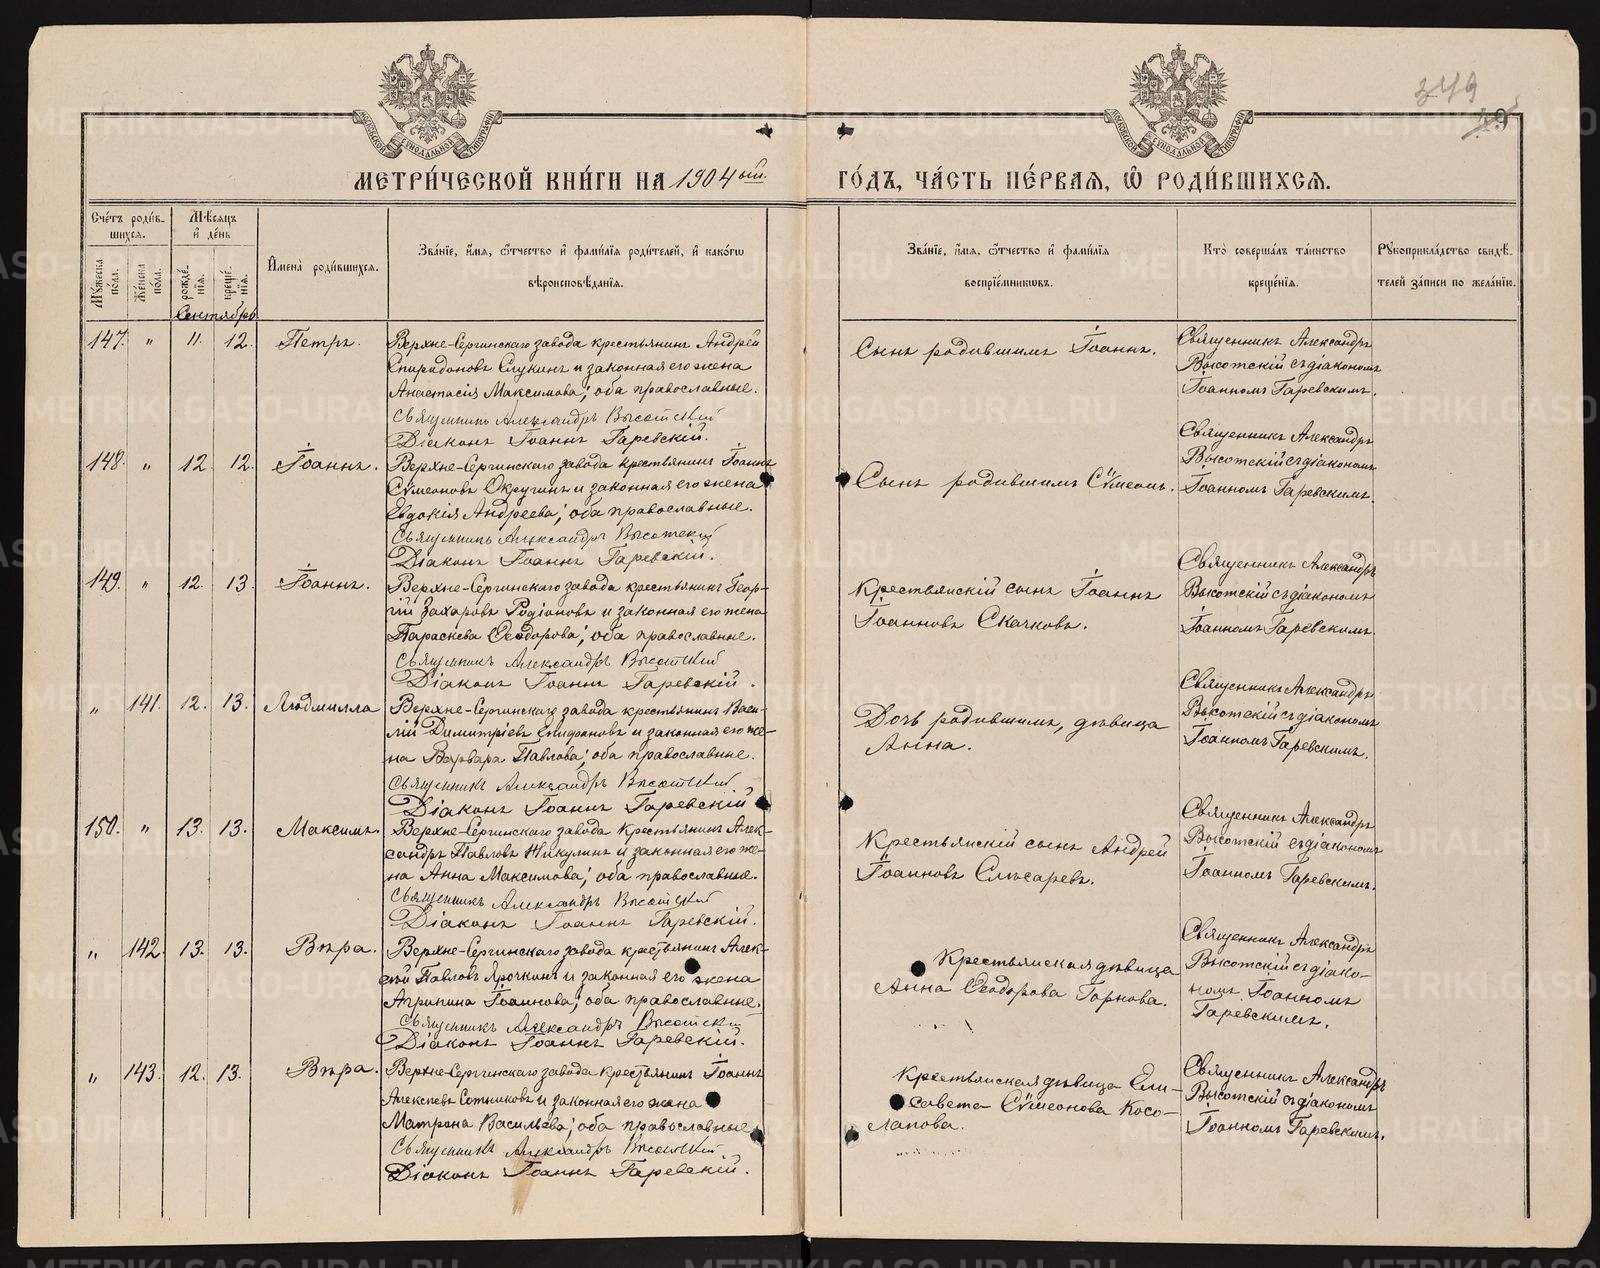 349
49
МЕТРИ́ЧЕСКОЙ КНИ́ГИ НА 1904 ый.
ГО́ДЪ, ЧА́СТЬ ПЕ́РВАЯ, Ѡ РОДИ́ВШИХСЯ.
Счётъ роди́в-
шихся.
Мѣсяцъ
и де́нь
Мꙋжеска по́ла.
Же́нска по́ла.
рожде́нїѧ.
креще́нїѧ.
И҆мена̀ роди́вшихся.
Зва́нїе, и҆́мя, ѻ҆́тчество и҆ фами́лїя роди́телей, и҆ како́гѡ
вѣроисповѣ́данїя.
Зва́нїе, и҆́мя, ѻ҆́тчество и҆ фами́лїя
воспрїе́мникѡвъ.
Кто̀ соверша́лъ та́инство
креще́нїя.
Рꙋкоприкла́дство свидѣ́-
телей за́писи по жела́нїю.
Сентябрь
147. „ 11. 12. Петръ.
Верхне-Сергинскаго завода крестьянинъ Андрей
Спиридоновъ Слукинъ и законная его жена
Анастасія Максимова; оба православные.
Священникъ Александръ Высотскій
Діаконъ Іоаннъ Гаревскій.
Сынъ родившимъ Іоаннъ.
Священникъ Александръ
Высотскій съ діакономъ
Іоанномъ Гаревскимъ.
148. „ 12. 12. Іоаннъ.
Верхне-Сергинскаго завода крестьянинъ Іоаннъ
Сѵмеоновъ Округинъ и законная его жена
Евдокія Андреева; оба православные.
Священникъ Александръ Высотскій
Діаконъ Іоаннъ Гаревскій.
Сынъ родившимъ Сѵмеонъ.
Священникъ Александръ
Высотскій съ діакономъ
Іоанномъ Гаревскимъ.
149. „ 12. 13. Іоаннъ.
Верхне-Сергинскаго завода крестьянинъ Геор-
гій Захаровъ Родіоновъ и законная его жена
Параскева Ѳеодорова; оба православные.
Священникъ Александръ Высотскій
Діаконъ Іоаннъ Гаревскій.
Крестьянскій сынъ Іоаннъ
Іоанновъ Скачковъ.
Священникъ Александръ
Высотскій съ діакономъ
Іоанномъ Гаревскимъ.
„ 141. 12. 13. Людмилла
Верхне-Сергинскаго завода крестьянинъ Васи-
лій Димитріевъ Епифановъ и законная его же-
на Варвара Павлова; оба православные.
Священникъ Александръ Высотскій
Діаконъ Іоаннъ Гаревскій
Дочь родившимъ, дѣвица
Анна.
Священникъ Александръ
Высотскій съ діакономъ
Іоанномъ Гаревскимъ.
150. „ 13. 13. Максимъ.
Верхне-Сергинскаго завода крестьянинъ Алек-
сандръ Павловъ Никулинъ и законная его же-
на Анна Максимова; оба православные.
Священникъ Александръ Высотскій
Діаконъ Іоаннъ Гаревскій.
Крестьянскій сынъ Андрей
Іоанновъ Слѣсаревъ.
Священникъ Александръ
Высотскій съ діакономъ
Іоанномъ Гаревскимъ.
„ 142. 13. 13. Вѣра.
Верхне-Сергинскаго завода крестьянинъ Алек-
сѣй Павловъ Ярочкинъ и законная его жена
Агрипина Іоаннова; оба православные.
Священникъ Александръ Высотскій
Діаконъ Іоаннъ Гаревскій.
Крестьянская дѣвица
Анна Ѳеодорова Горнова.
Священникъ Александръ
Высотскій съ діако-
номъ Іоанномъ
Гаревскимъ.
„ 143. 12. 13. Вѣра.
Верхне-Сергинскаго завода крестьянинъ Іоаннъ
Алексѣевъ Сотниковъ и законная его жена
Матрона Васильева; оба православные.
Священникъ Александръ Высотскій
Діаконъ Іоаннъ Гаревскій.
Крестьянская дѣвица Ели-
савета Сѵмеонова Косо-
лапова.
Священникъ Александръ
Высотскій съ діакономъ
Іоанномъ Гаревскимъ.